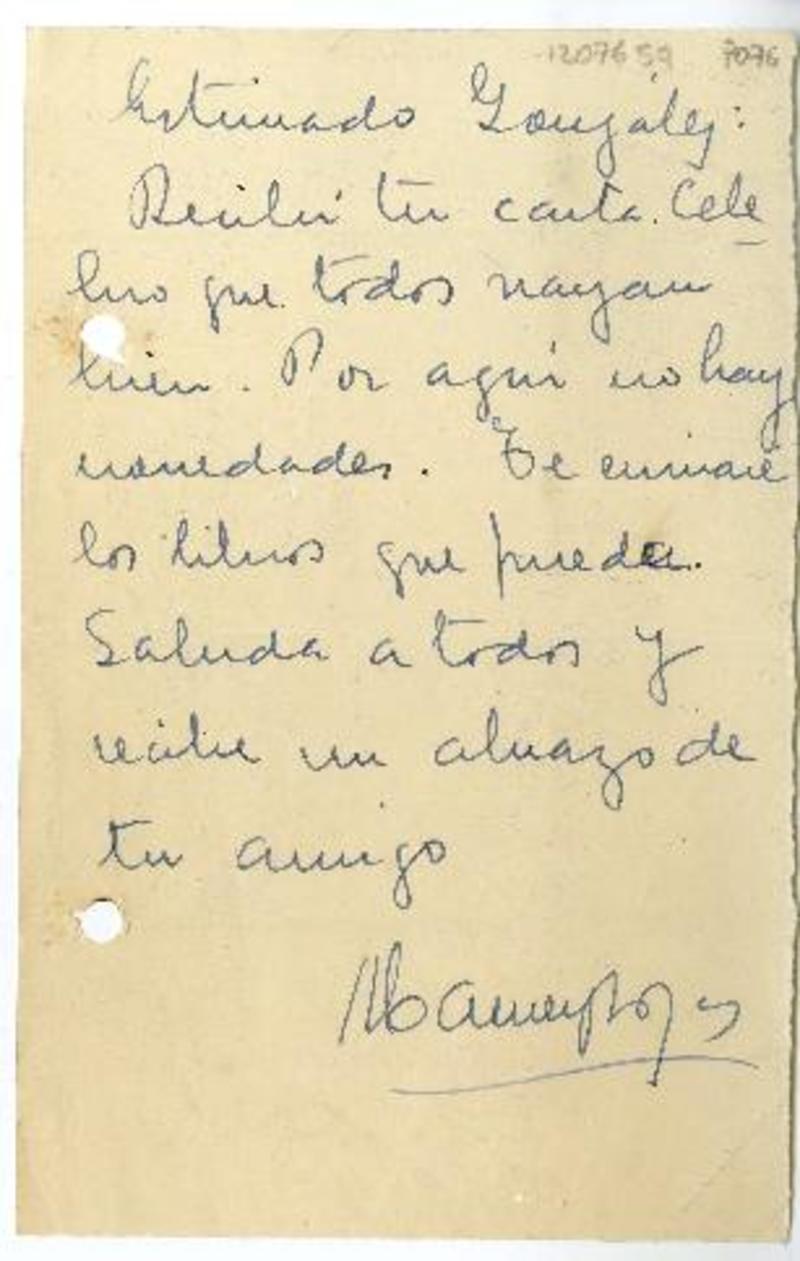 1207659 7076
Estimado González:
Recibí tu carta. Cele
bro que todos vayan
bien. Por aquí no hay
novedades. Te enviaré
los libros que pueda.
Saluda a todos y
recibe un abrazo de
tu amigo